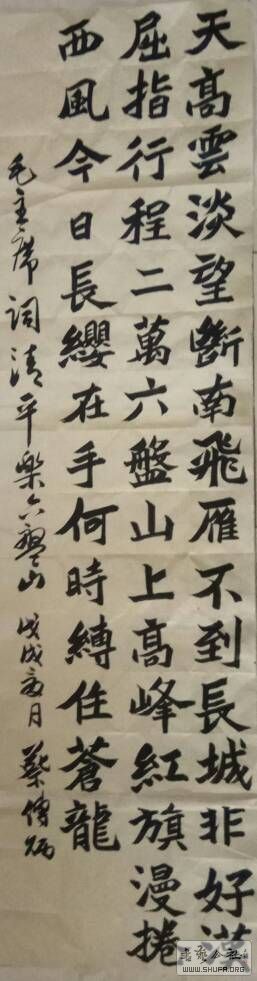 天高雲淡望斷南飛雁不到長城非好漢
屈指行程二萬六盤山上高峰紅旗漫捲
西風今日長纓在手何時縛住蒼龍
毛主席詞清平樂六盤山 戊戌月 蔡傳
WWW.SHUFA.ORG